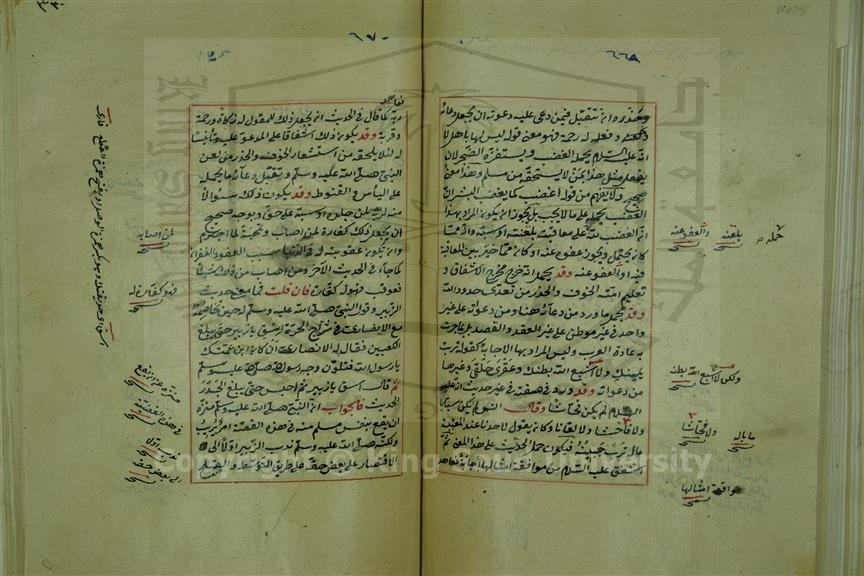 ٦٦٩
وحذر وانه تتقبل فيمن دعى عليه دعوته ان يجعل دعائه
وفعله له رحمة فهو معنى قوله ليس لها باهل لا
انه عليه السلام يحمله الغضب ويستفزه الضجر لان
يفعل مثل هذا بمن لا يستحقه من مسلم وهذا معنى
صحيح ولا يفهم من قوله اغضب كما يغضب البشر ان
الغضب حمله على ما لا يجب بل يجوز ان يكون المراد بهذا
ان الغضب لله على معاقبته بلعنه او سبه وانه مما
كان يحتمل ويجوز عفوه عنه او كان مما خير بين المعاقبة
فيه او العفو عنه وقد يحمل انه خرج مخرج الاشفاق و
تعليم امته الخوف والحذر من تعدى حدود الله
وقد يحمل ما ورد من دعائه هنا ومن دعواته على غير
واحد في غير موطن على غير العقد والقصد بل بما جرت
به عادة العرب وليس المراد بها الاجابة كقوله تربت
يمينك ولا اشبع الله بطنك وعقرى حلقى وغيرها
من دعواته وقد ورد في صفته في غير حديث انه عليه
السلام لم يكن فحاشا وقال انس لم يكن سبابا
ولا فاحشا ولا لعانا وكان يقول لاحدنا عند المعتبة
ماله ترب جبينه فيكون حمل الحديث على هذا المعنى ثم
اشفق عليه السلام من موافقة امثالها اجابة فعاهد
بلعنه
والعفو عنه
ولا اشبع الله بطنه
ولا فحاشا
ما باله
امثالها
٦٧٠
ربه كما قال في الحديث ان يجعل ذلك للمقول له زكاة ورحمة
وقربة وقد يكون ذلك اشفاقا على المدعو عليه وتأنيسا
له لئلا يلحقه من استشعار الخوف والحذر من لعن
النبي صلى الله عليه وسلم وتقبل دعائه ما يحمله
على اليأس والقنوط وقد يكون ذلك سؤالا
منه لربه لمن جلده او سبه على حق وبوجه صحيح
ان يجعل ذلك كفارة لمن اصاب وتمحية لما اجترم
وان تكون عقوبته له في الدنيا سبب العفو والغفران
كما جاء في الحديث الآخر ومن اصاب من ذلك شيئا
فعوقب فهو له كفارة فان قلت فما معنى حديث
الزبير وقول النبي صلى الله عليه وسلم له حين تخاصمه
مع الانصارى في شراج الحرة اسق يا زبير حتى يبلغ
الكعبين فقال له الانصارى ان كان ابن عمتك
يا رسول الله فتلون وجه رسول الله صلى الله عليه وسلم
ثم قال اسق يا زبير ثم احبس حتى يبلغ الجدر
الحديث فالجواب ان النبي صلى الله عليه وسلم منزه
ان يقع بنفس مسلم منه في هذه القصة امر يريب
ولكنه صلى الله عليه وسلم ندب الزبير اولا الى
الاقتصار على بعض حقه على طريق التوسط والصلح
لمن اصابه
فهو كفارة له
منزه عن ان يقع
في هذه القضية
Copyright © King Saud University